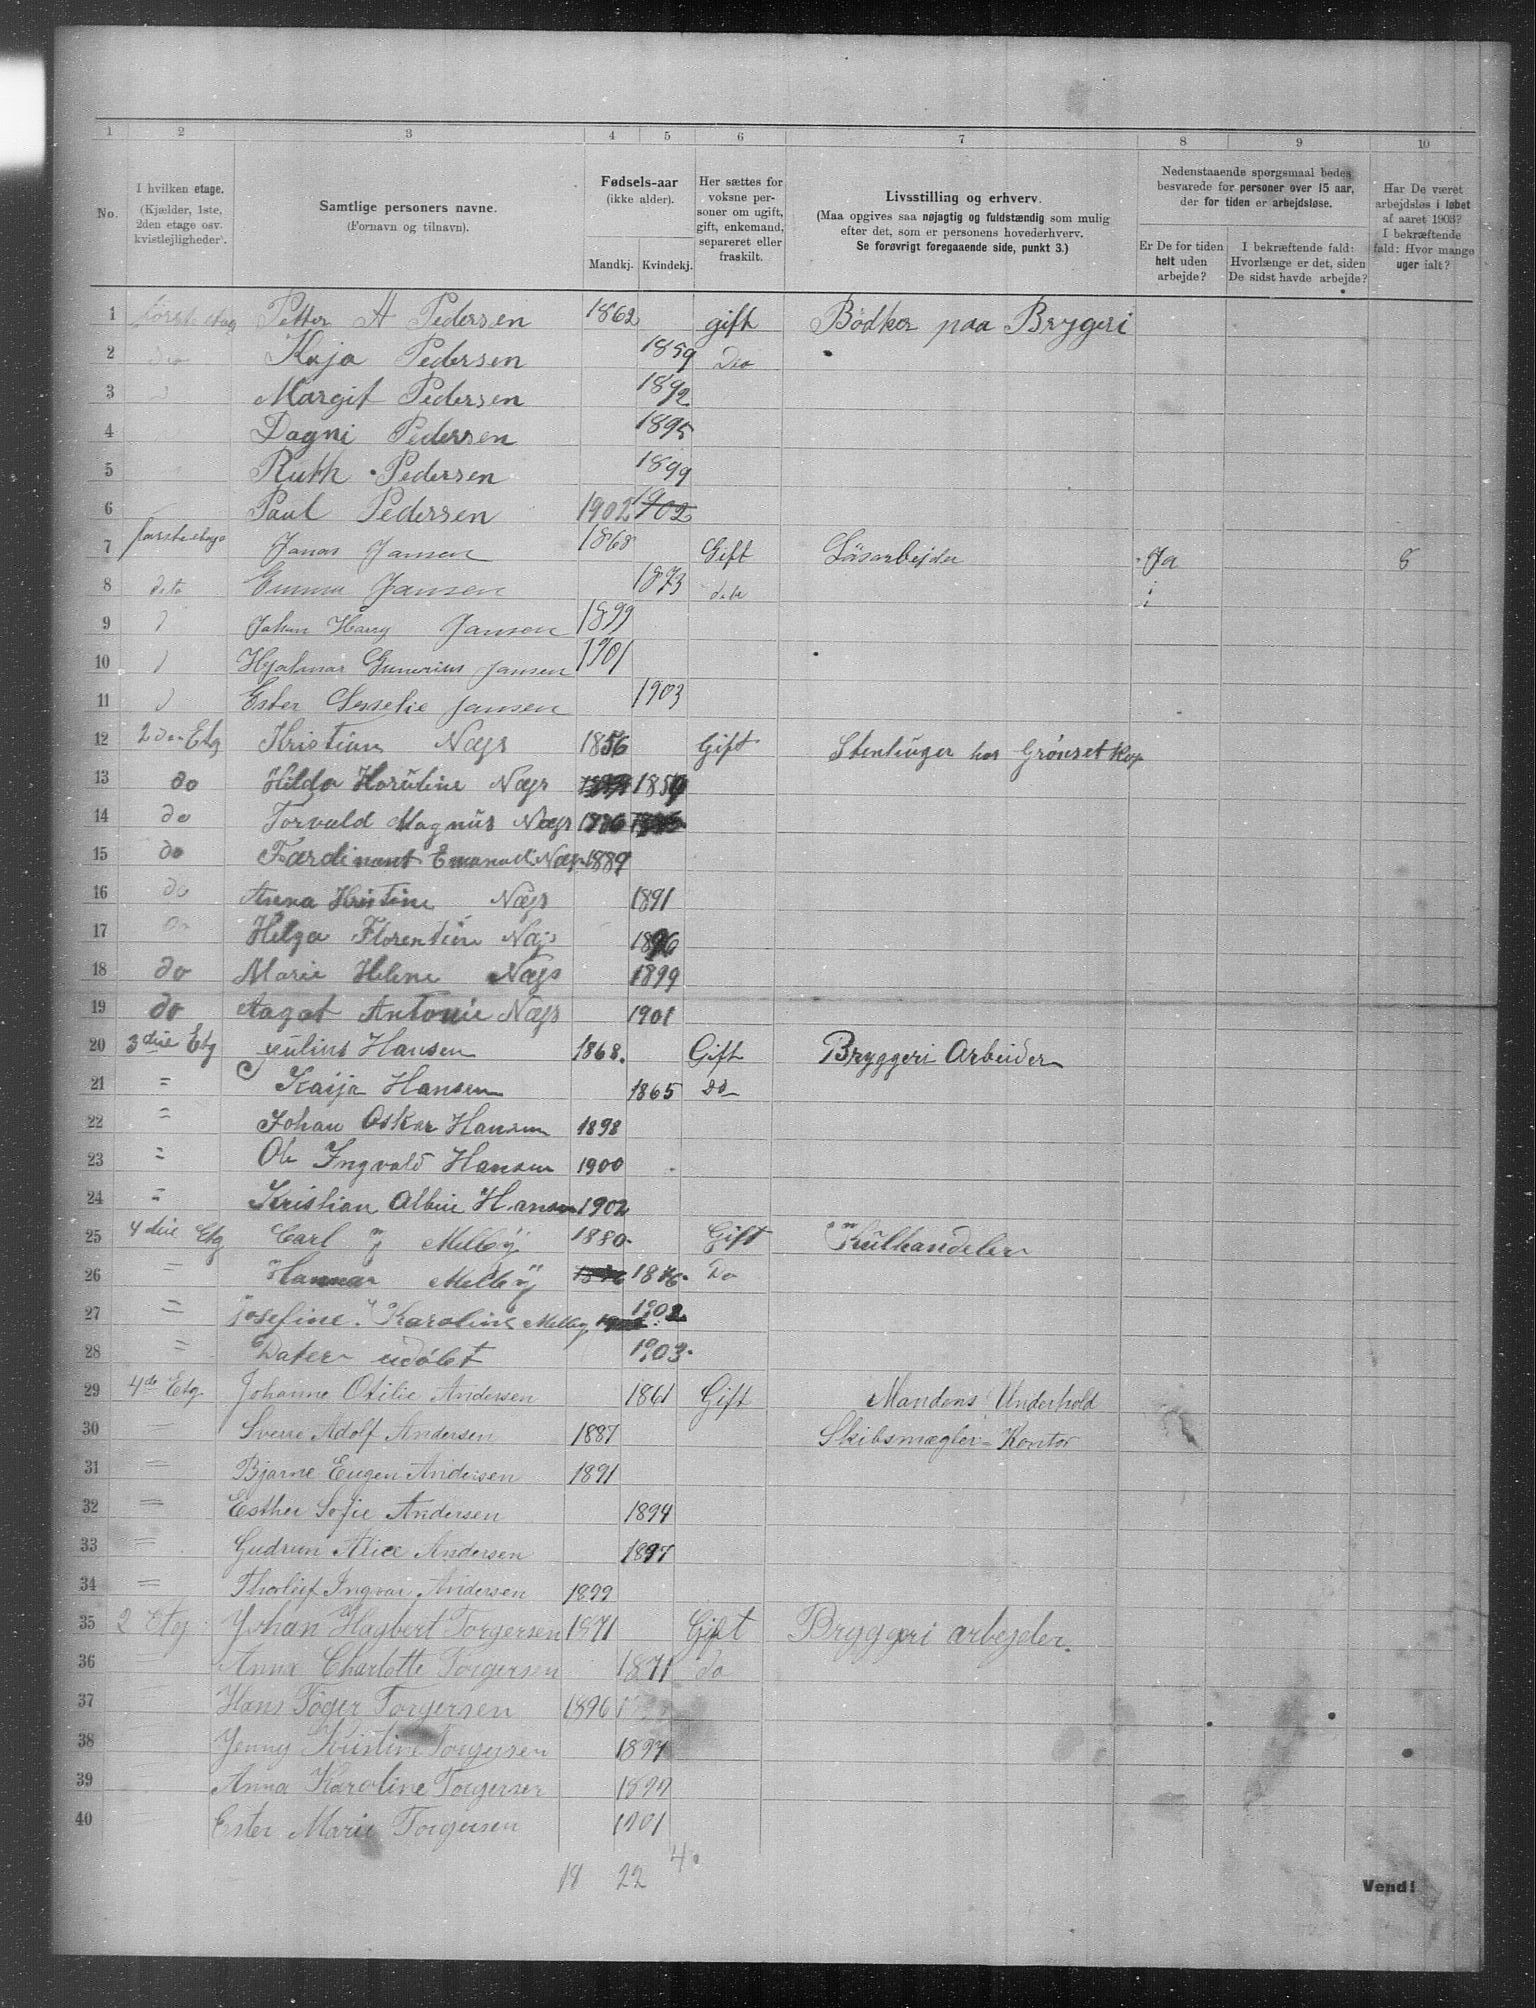 1 2 3 4 5 6 7 8 9 10
No.
I hvilken etage. (Kjælder, 1ste, 2den etage osv. kvistlejligheder).
Samtlige personers navne. (Fornavn og tilnavn).
Fødsels-aar (ikke alder). Mandkj. Kvindekj.
Her sættes for voksne personer om ugift, gift, enkemand, separeret eller fraskilt.
Livsstilling og erhverv. (Maa opgives saa nøjagtig og fuldstændig som mulig efter det, som er personens hovederhverv. Se forøvrigt foregaaende side, punkt 3.)
Nedenstaaende spørgsmaal bedes besvarede for personer over 15 aar, der for tiden er arbejdsløse.
Er De for tiden helt uden arbejde?
I bekræftende fald: Hvorlænge er det, siden De sidst havde arbejde?
Har De været arbejdsløs i løbet af aaret 1903? I bekræftende fald: Hvor mange uger ialt?
1 første etag Petter A Pedersen 1862 gift Bødker paa Brygeri
2 do Kaja Pedersen 1859 Do
3 Margit Pedersen 1892
4 Dagni Pedersen 1895
5 Ruth Pedersen 1899
6 Paul Pedersen 1902 1902
7 første etage Jonas Jansen 1868 Gift Løsarbejder Ja 8
8 deto Emma Jansen 1873 deto
9 Johan Harry Jansen 1899
10 Hjalmar Gunerius Jansen 1901
11 Ester Jansen 1903
12 2den Etg Kristian Næss 1856 Gift Stenhuger hos Grønset
13 do Hilda Næss 1859
14 do Torvald Magnus Næss 1886
15 do Færdinant Emanuel Næss 1889
16 do Anna Kristine Næss 1891
17 do Helga Florentine Næss 1896
18 do Marie Helene Næss 1899
19 do Aagot Antonie Næss 1901
20 3die Etg Julius Hansen 1868. Gift Bryggeri Arbeider
21 " Kaija Hansen 1865 Do
22 " Johan Oskar Hansen 1898
23 " Ole Ingvald Hansen 1900
24 " Kristian Albin Hansen 1902
25 4die Etg Carl J Melby 1880. Gift Kulhandeler
26 " Hanna Melby 1876. Do
27 " Josefine Karoline Melby 1902
28 " Dater udøbt 1903.
29 4de Etg. Johanne Otilie Andersen 1861 Gift Mandens Underhold
30 " Sverre Adolf Andersen 1887 Skibsmægler-Kontor
31 " Bjarne Eugen Andersen 1891
32 " Esther Sofie Andersen 1894
33 " Gudrun Alice Andersen 1897
34 " Thorleif Ingvar Andersen 1899
35 2 Etg Johan Hagbert Torgersen 1871 Gift Bryggeri arbejder.
36 Anna Charlotte Torgersen 1871 do
37 Hans Roger Torgersen 1896
38 Jenny Kristine Torgersen 1897
39 Anna Karoline Torgersen
40 Ester Marie Torgersen 1901
18 22 4.
Vend!